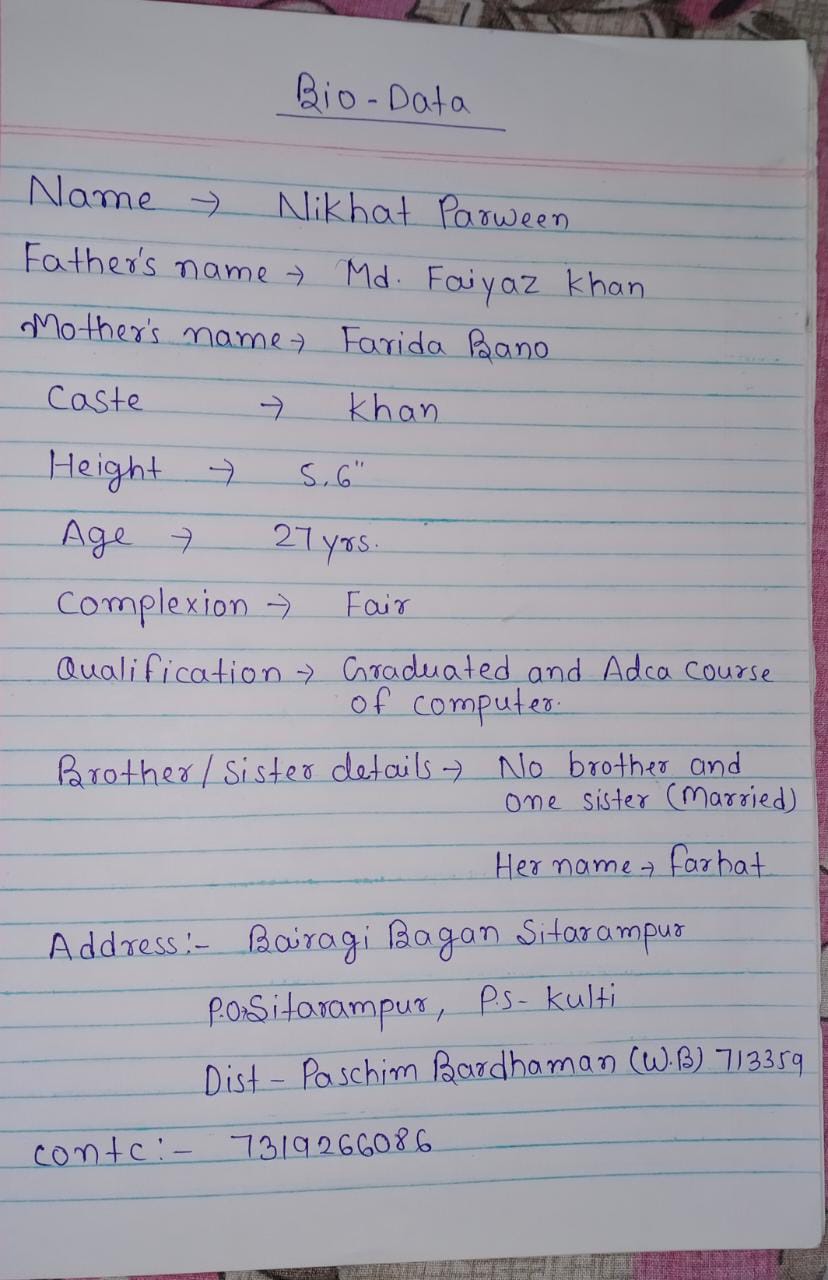 Bio-Data
Name → Nikhat Parween
Father's name → Md. Faiyaz khan
Mother's name → Farida Bano
Caste → khan
Height → 5.6"
Age → 27 yrs.
Complexion → Fair
Qualification → Graduated and Adca course
of computer.
Brother/Sister details → No brother and
one sister (Married)
Her name → farhat
Address:- Bairagi Bagan Sitarampur
P.O-Sitarampur, P.S- kulti
Dist - Paschim Bardhaman (W.B) 713359
contc:- 7319266086